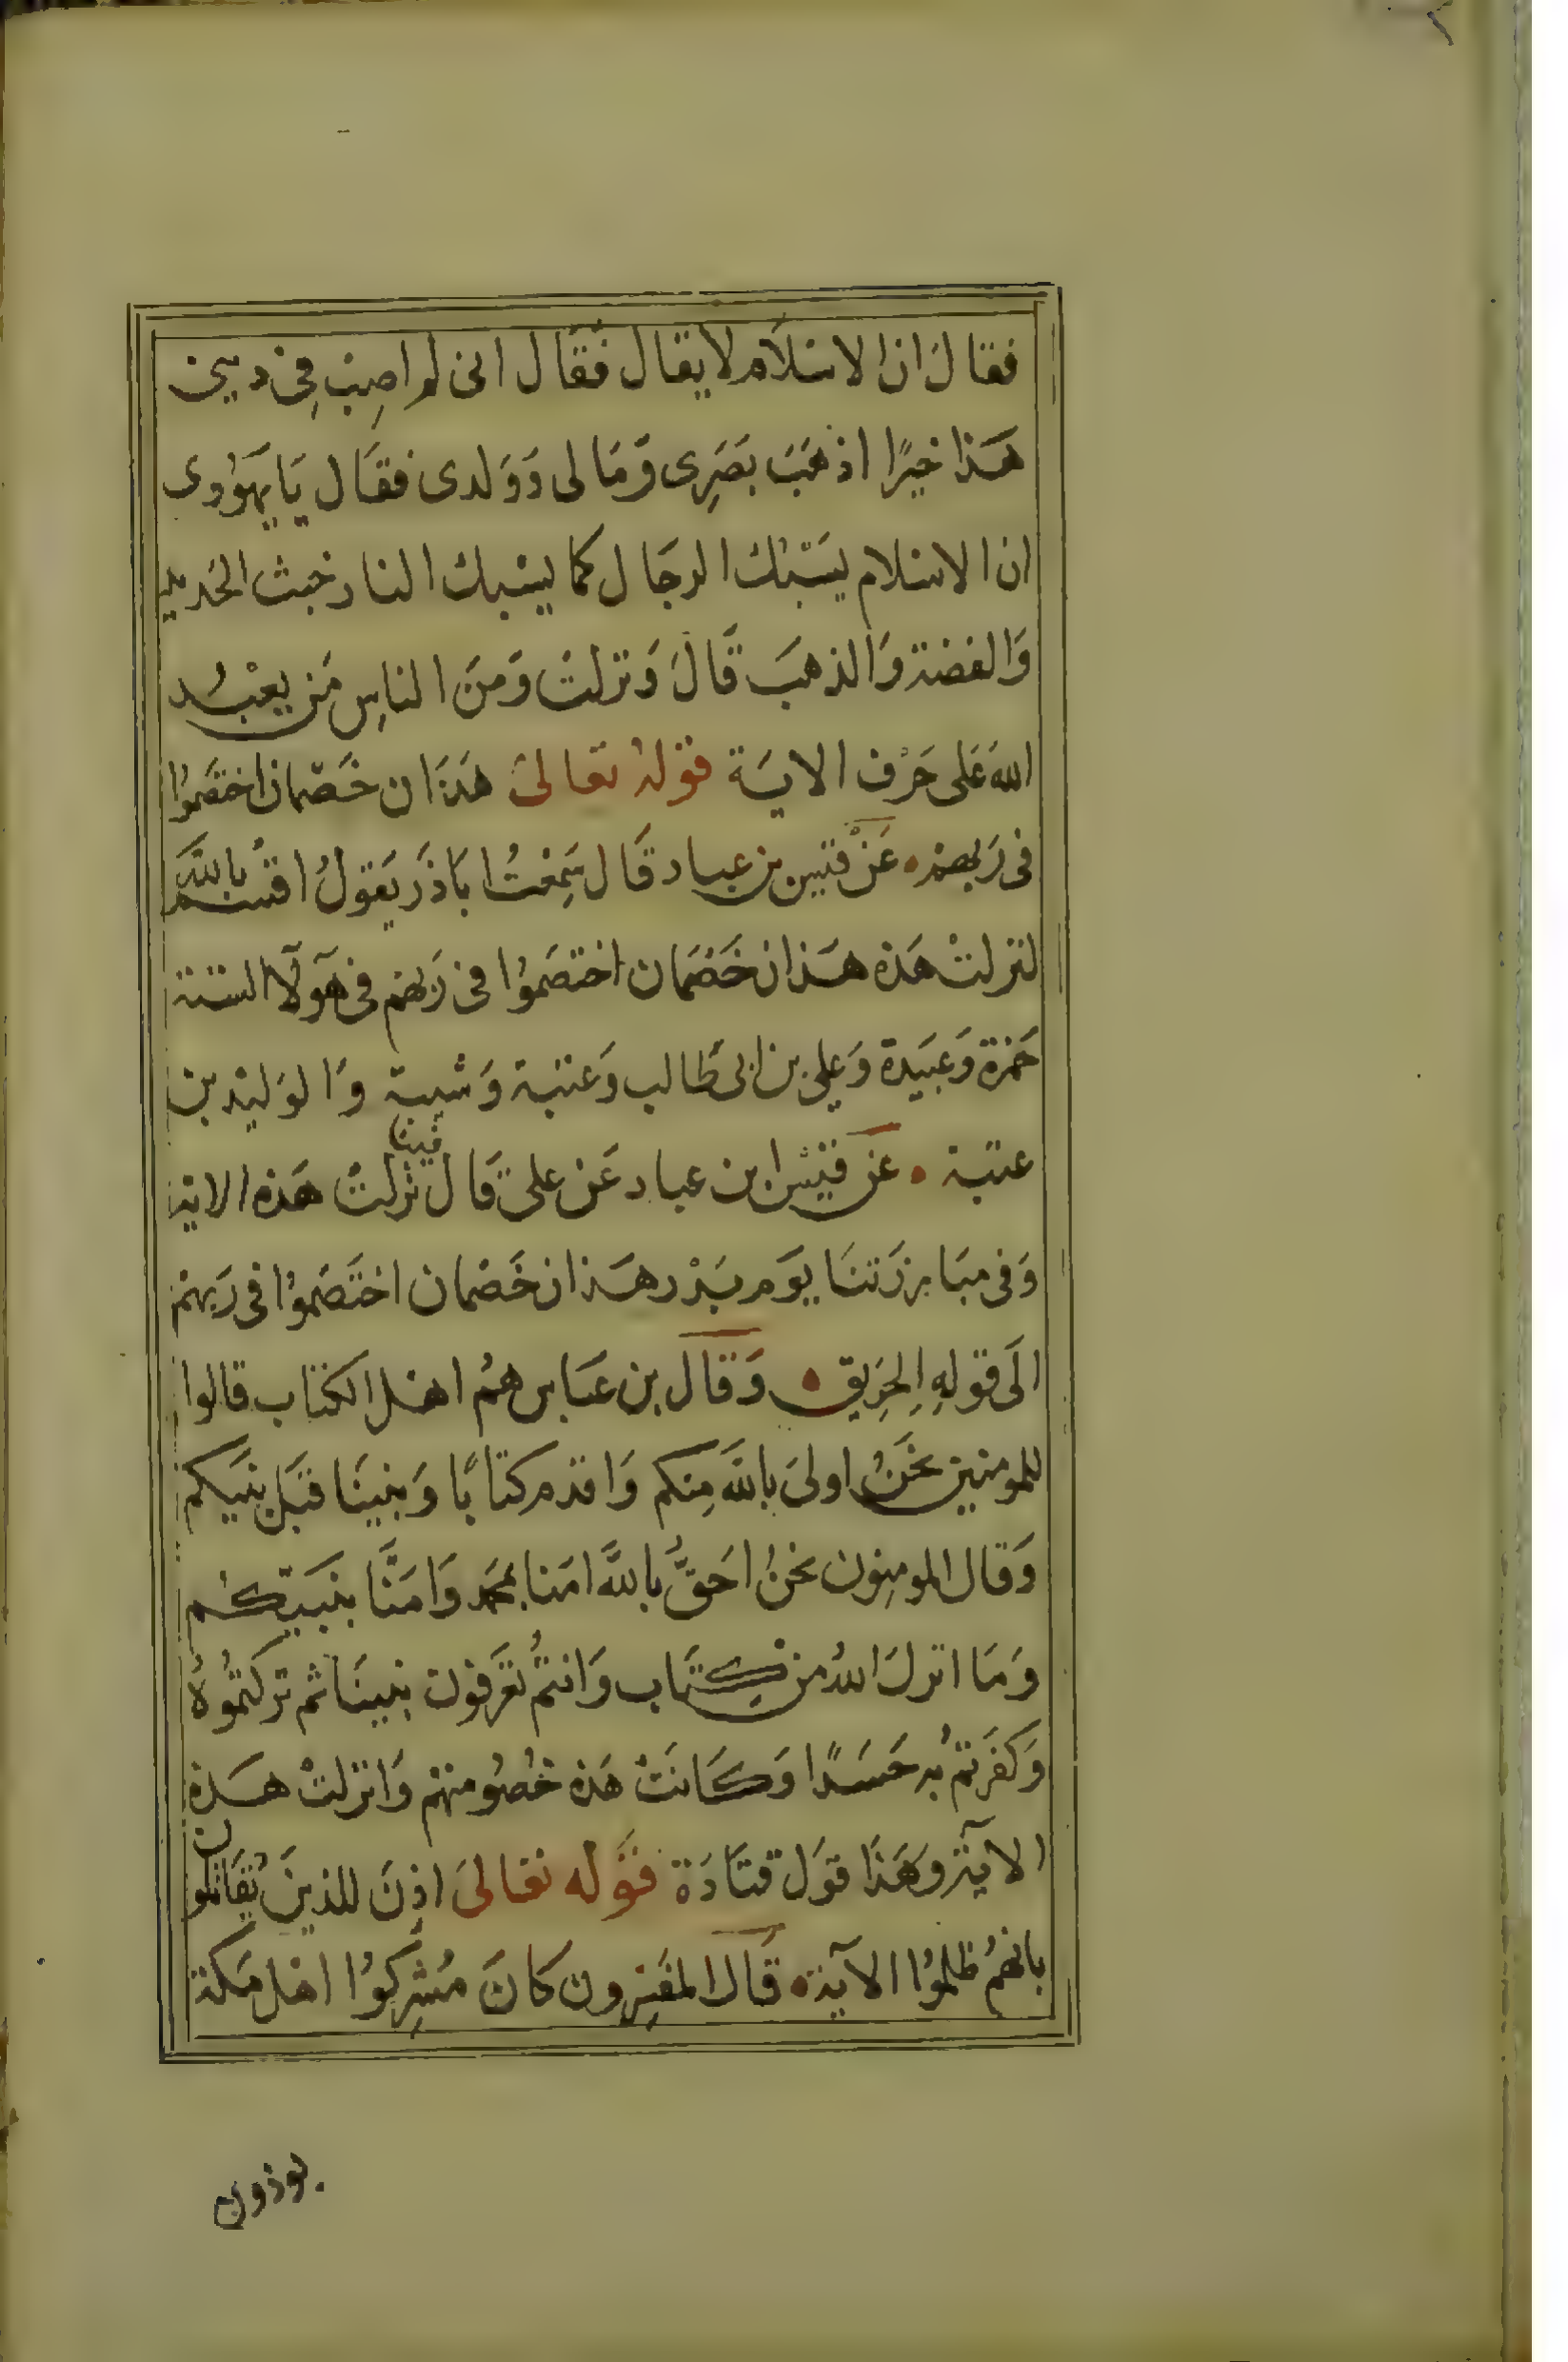 فقالَ ان الاسْلَام لا يقال فَقَال انى لم اصِبْ فِى دينى
هَذا خيرًا اذهَبَ بصَرِى وَمَا لى وَوَلدى فقَال يَا يهَوُدى
ان الاسْلام يسَبْك الرجَال كما يسْبك النار خبث الحَديد
وَالفضة وَالذهبَ قَالَ وَنزلتْ وَمنَ الناسِ مَن يعْبُد
اللهَ عَلى حَرْف الايَة قوْلهُ تعَالىَ هَذَان خَصْمان اختصَموُا
فى رَبهمْ ۰ عَنْ قيس بن عباد قَال سَمِعْتُ ابَا ذَر يَقولُ اقسم باللهَ
لنزلتْ هَذه هَذان خَصْمَان اختصَموُا فى رَبهْم فى هَوَلآ الستة
حَمزة وَعبَيدة وَعلى بن ابى طَالب وَعتبَة وَشيبة وَالوَليْد بن
عتبة ۰ عَن قيْس ابن عباد عَن على قَال فينا نزلتْ هَذه الاية
وَفى مبَارزَتنَا يوَم بَدْر هَذان خَصْمان اختَصَموُا فى رَبهمْ
الَى قولهِ الحَرِيق ۰ وَقال بن عَباس همُ اهْل الكتاب قالوا
للمومنين نحَنُ اولىَ باللهَ مِنكم وَاقدم كتابًا وَنبينَا قبَل نبيَكم
وَقال المومنِون نحنُ احَقُّ باللهَ امَنا بمحَمد وَامَنَّا بنَبيّكُم
وَمَا انزلَ اللهُ منْ كِتَاب وَانتمُ تعَرفوْن نبينَا ثم تركتمُوُهُ
وَكفَرتمُ به حَسَدًا وَكَانَتْ هَذه خُصُومتهمْ وَانزلتْ هَذه
الآية وهَذَا قوَل قتَادَة قوَله تعَالىَ اذِنَ للذينَ يُقَاتلون
بانهَمُ ظلموُا الآية ۰ قَال المفَسِرون كانَ مُشرِكوُا اهْل مَكة
يوذون